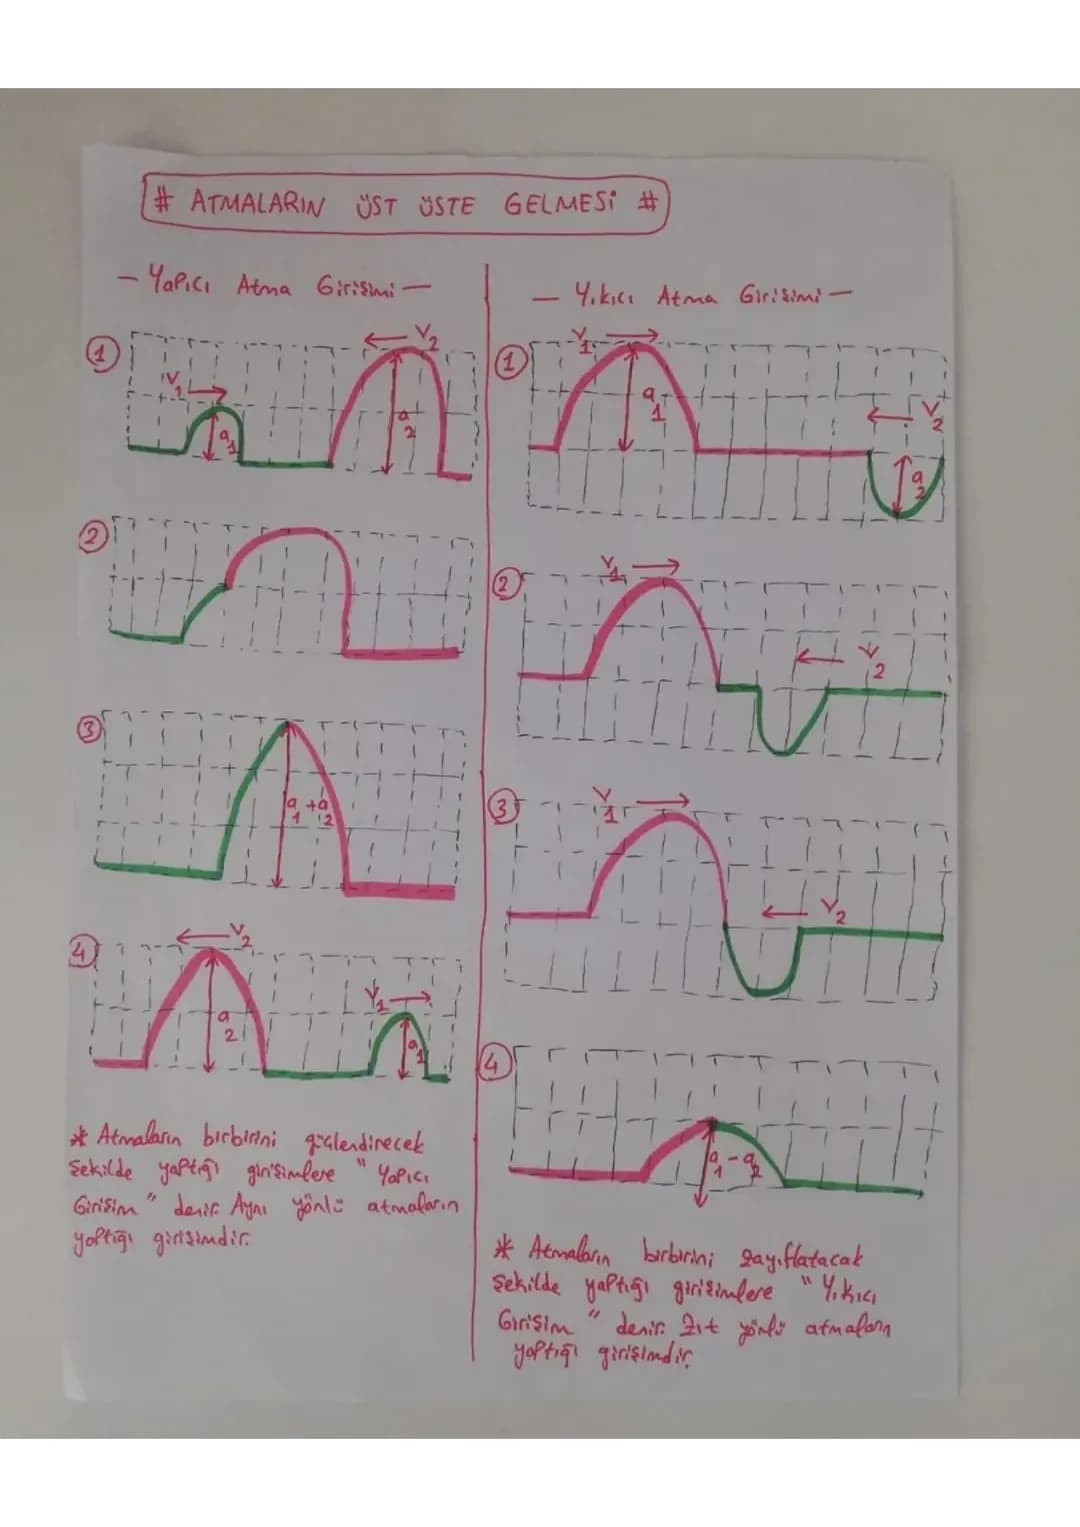 # ATMALARIN ÜST ÜSTE GELMESİ #
- Yapıcı Atma Girişimi -
1
V1
a1
V2
a2
2
3
a1+a2
4
V2
a2
V1
a1
* Atmaların birbirini güçlendirecek
şekilde yaptığı girişimlere "Yapıcı
Girişim" denir. Aynı yönlü atmaların
yaptığı girişimdir.
- Yıkıcı Atma Girişimi -
1
V1
a1
V2
a2
2
V1
V2
3
V1
V2
4
a1-a2
* Atmaların birbirini zayıflatacak
şekilde yaptığı girişimlere "Yıkıcı
Girişim" denir. Zıt yönlü atmaların
yaptığı girişimdir.